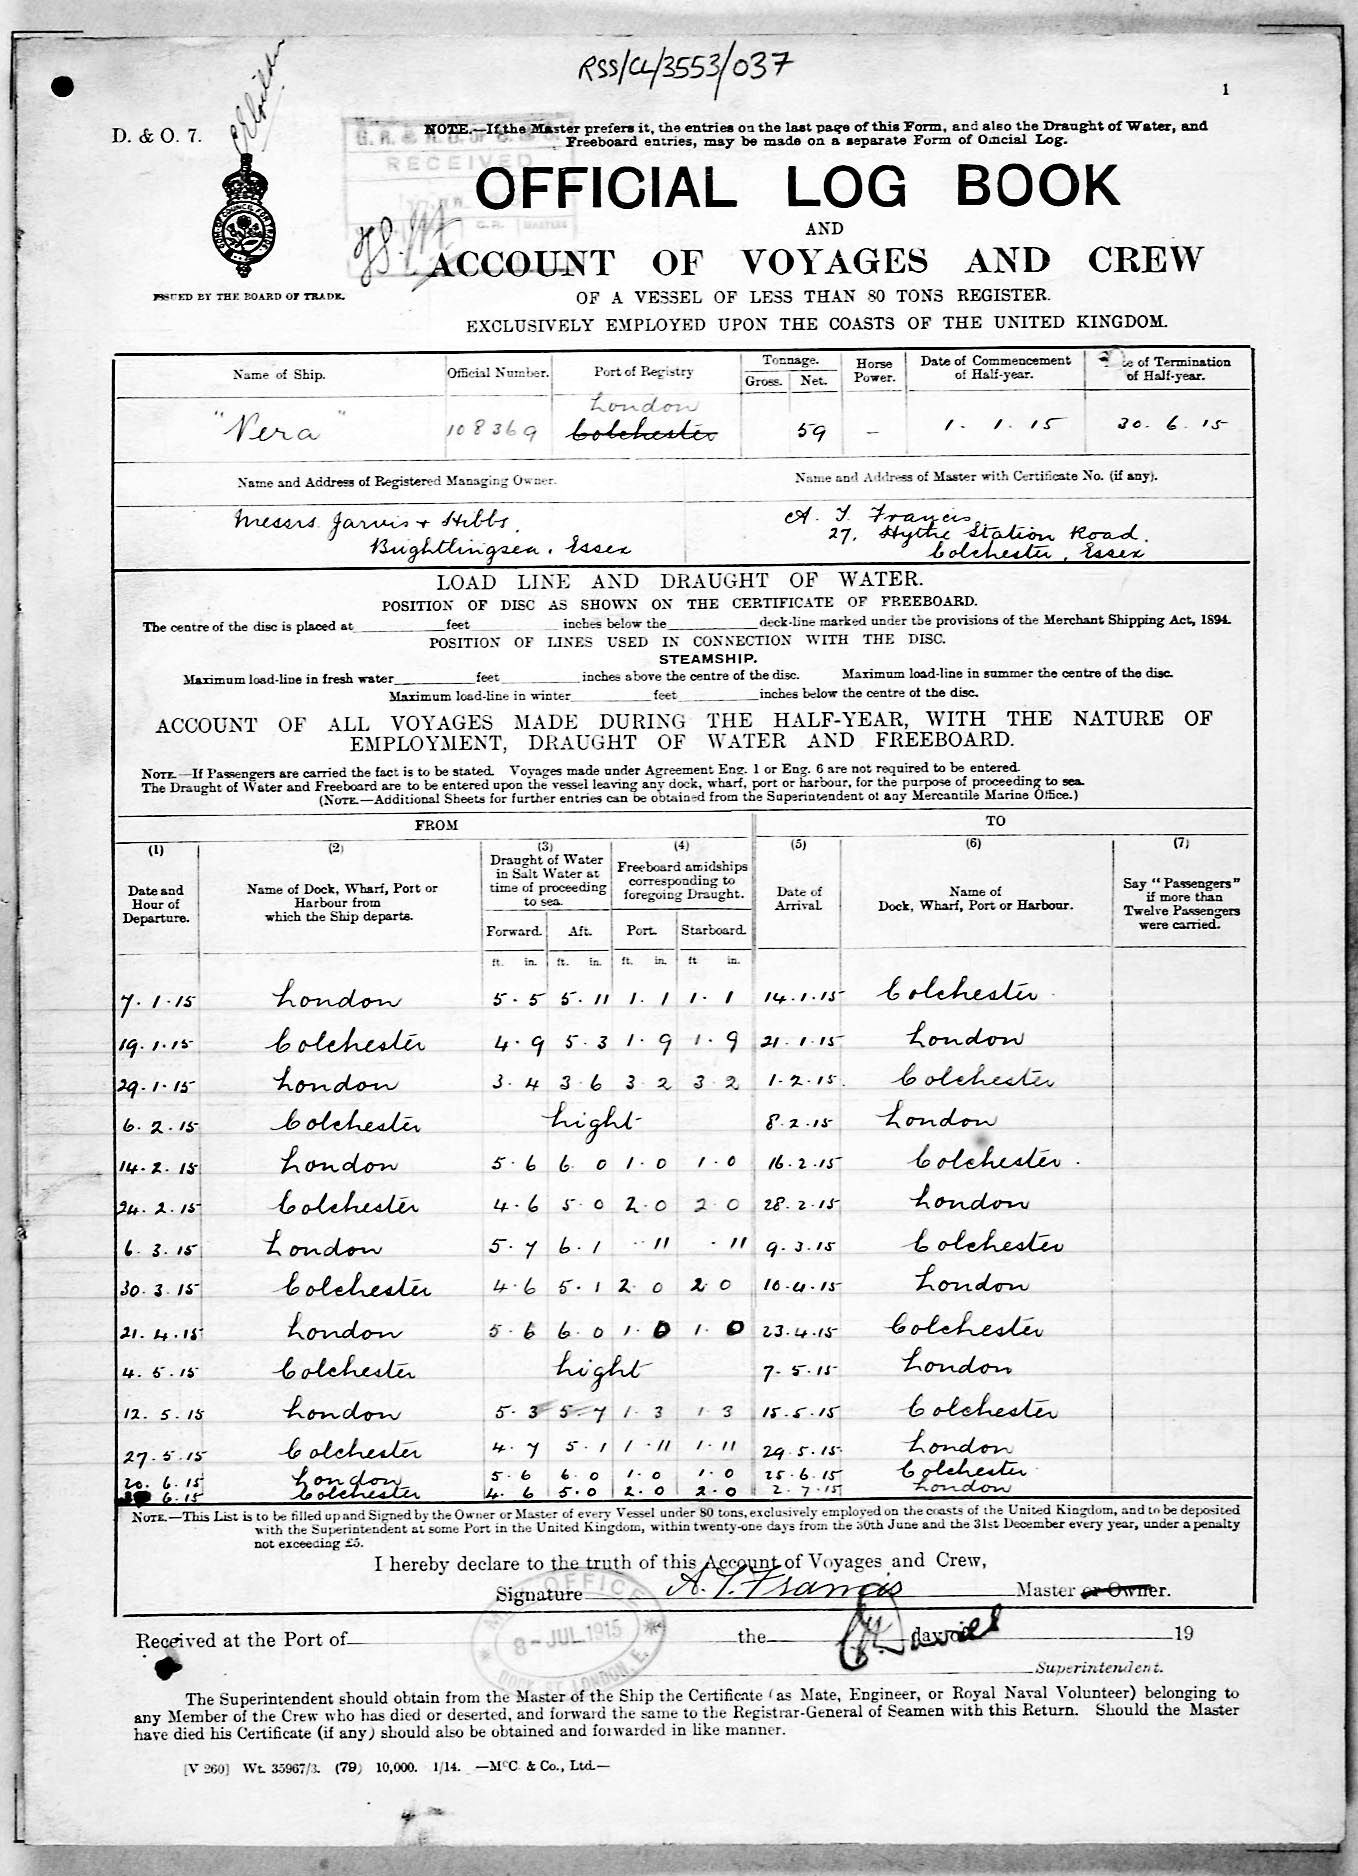 RSS/CL/3553/037
1
D. & O. 7.
NOTE.—If the Master prefers it, the entries on the last page of this Form, and also the Draught of Water, and
Freeboard entries, may be made on a separate Form of Official Log.
RECEIVED
OFFICIAL LOG BOOK
AND
ACCOUNT OF VOYAGES AND CREW
ISSUED BY THE BOARD OF TRADE.
OF A VESSEL OF LESS THAN 80 TONS REGISTER.
EXCLUSIVELY EMPLOYED UPON THE COASTS OF THE UNITED KINGDOM.
Name of Ship. Official Number. Port of Registry Tonnage. Gross. Net. Horse Power. Date of Commencement of Half-year. te of Termination of Half-year.
London
"Vera" 108369 Colchester 59 – 1. 1. 15 30. 6. 15
Name and Address of Registered Managing Owner. Name and Address of Master with Certificate No. (if any).
Messrs Jarvis & Hibbs, A. T. Francis,
Brightlingsea, Essex 27, Hythe Station Road.
Colchester, Essex
LOAD LINE AND DRAUGHT OF WATER.
POSITION OF DISC AS SHOWN ON THE CERTIFICATE OF FREEBOARD.
The centre of the disc is placed at feet inches below the deck-line marked under the provisions of the Merchant Shipping Act, 1894.
POSITION OF LINES USED IN CONNECTION WITH THE DISC.
STEAMSHIP.
Maximum load-line in fresh water feet inches above the centre of the disc. Maximum load-line in summer the centre of the disc.
Maximum load-line in winter feet inches below the centre of the disc.
ACCOUNT OF ALL VOYAGES MADE DURING THE HALF-YEAR, WITH THE NATURE OF
EMPLOYMENT, DRAUGHT OF WATER AND FREEBOARD.
NOTE.—If Passengers are carried the fact is to be stated. Voyages made under Agreement Eng. 1 or Eng. 6 are not required to be entered.
The Draught of Water and Freeboard are to be entered upon the vessel leaving any dock, wharf, port or harbour, for the purpose of proceeding to sea.
(NOTE.—Additional Sheets for further entries can be obtained from the Superintendent of any Mercantile Marine Office.)
FROM TO
(1) (2) (3) (4) (5) (6) (7)
Date and Hour of Departure. Name of Dock, Wharf, Port or Harbour from which the Ship departs. Draught of Water in Salt Water at time of proceeding to sea. Freeboard amidships corresponding to foregoing Draught. Date of Arrival. Name of Dock, Wharf, Port or Harbour. Say "Passengers" if more than Twelve Passengers were carried.
Forward. Aft. Port. Starboard.
ft. in. ft. in. ft. in. ft in.
7. 1. 15 London 5. 5 5. 11 1. 1 1. 1 14. 1. 15 Colchester
19. 1. 15 Colchester 4. 9 5. 3 1. 9 1. 9 21. 1. 15 London
29. 1. 15 London 3. 4 3. 6 3. 2 3. 2 1. 2. 15. Colchester
6. 2. 15 Colchester Light 8. 2. 15 London
14. 2. 15 London 5. 6 6. 0 1. 0 1. 0 16. 2. 15 Colchester.
24. 2. 15 Colchester 4. 6 5. 0 2. 0 2. 0 28. 2. 15 London
6. 3. 15 London 5. 7 6. 1 . 11 . 11 9. 3. 15 Colchester
30. 3. 15 Colchester 4. 6 5. 1 2. 0 2. 0 10. 4. 15 London
21. 4. 15 London 5. 6 6. 0 1. 0 1. 0 23. 4. 15 Colchester
4. 5. 15 Colchester Light 7. 5. 15 London
12. 5. 15 London 5. 3 5. 7 1. 3 1. 3 15. 5. 15 Colchester
27. 5. 15 Colchester 4. 7 5. 1 1. 11 1. 11 29. 5. 15 London
20. 6. 15 London 5. 6 6. 0 1. 0 1. 0 25. 6. 15 Colchester
6. 15 Colchester 4. 6 5. 0 2. 0 2. 0 2. 7. 15 London
NOTE.—This List is to be filled up and Signed by the Owner or Master of every Vessel under 80 tons, exclusively employed on the coasts of the United Kingdom, and to be deposited
with the Superintendent at some Port in the United Kingdom, within twenty-one days from the 30th June and the 31st December every year, under a penalty
not exceeding £5.
I hereby declare to the truth of this Account of Voyages and Crew,
Signature A. T. Francis Master or Owner.
8 - JUL 1915
Received at the Port of the day of 19
Superintendent.
The Superintendent should obtain from the Master of the Ship the Certificate (as Mate, Engineer, or Royal Naval Volunteer) belonging to
any Member of the Crew who has died or deserted, and forward the same to the Registrar-General of Seamen with this Return. Should the Master
have died his Certificate (if any) should also be obtained and forwarded in like manner.
[V 260] Wt. 35967/3. (79) 10,000. 1/14. —McC. & Co., Ltd.—